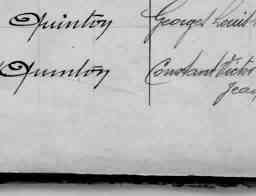 Quinton Georges Louis
Quinton Constant Victor
Jea